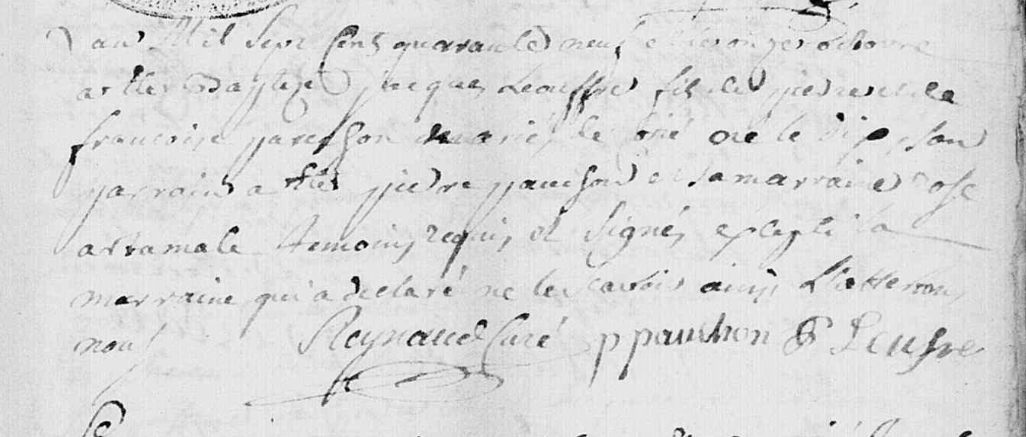 L'an Mil Sept Cens quarante neuf et le onze octobre
a été Baptizé jacques Leouffre fils de pierre et de
francoise pauchon mariés le né le dix, son
parrain a été pierre pauchon et sa marraine Rose
artamale temoins requis et signés excepté la
marraine qui a déclaré ne le scavoir ainsi L'attestons
nous Reynaud Curé p pauchon P Leufre